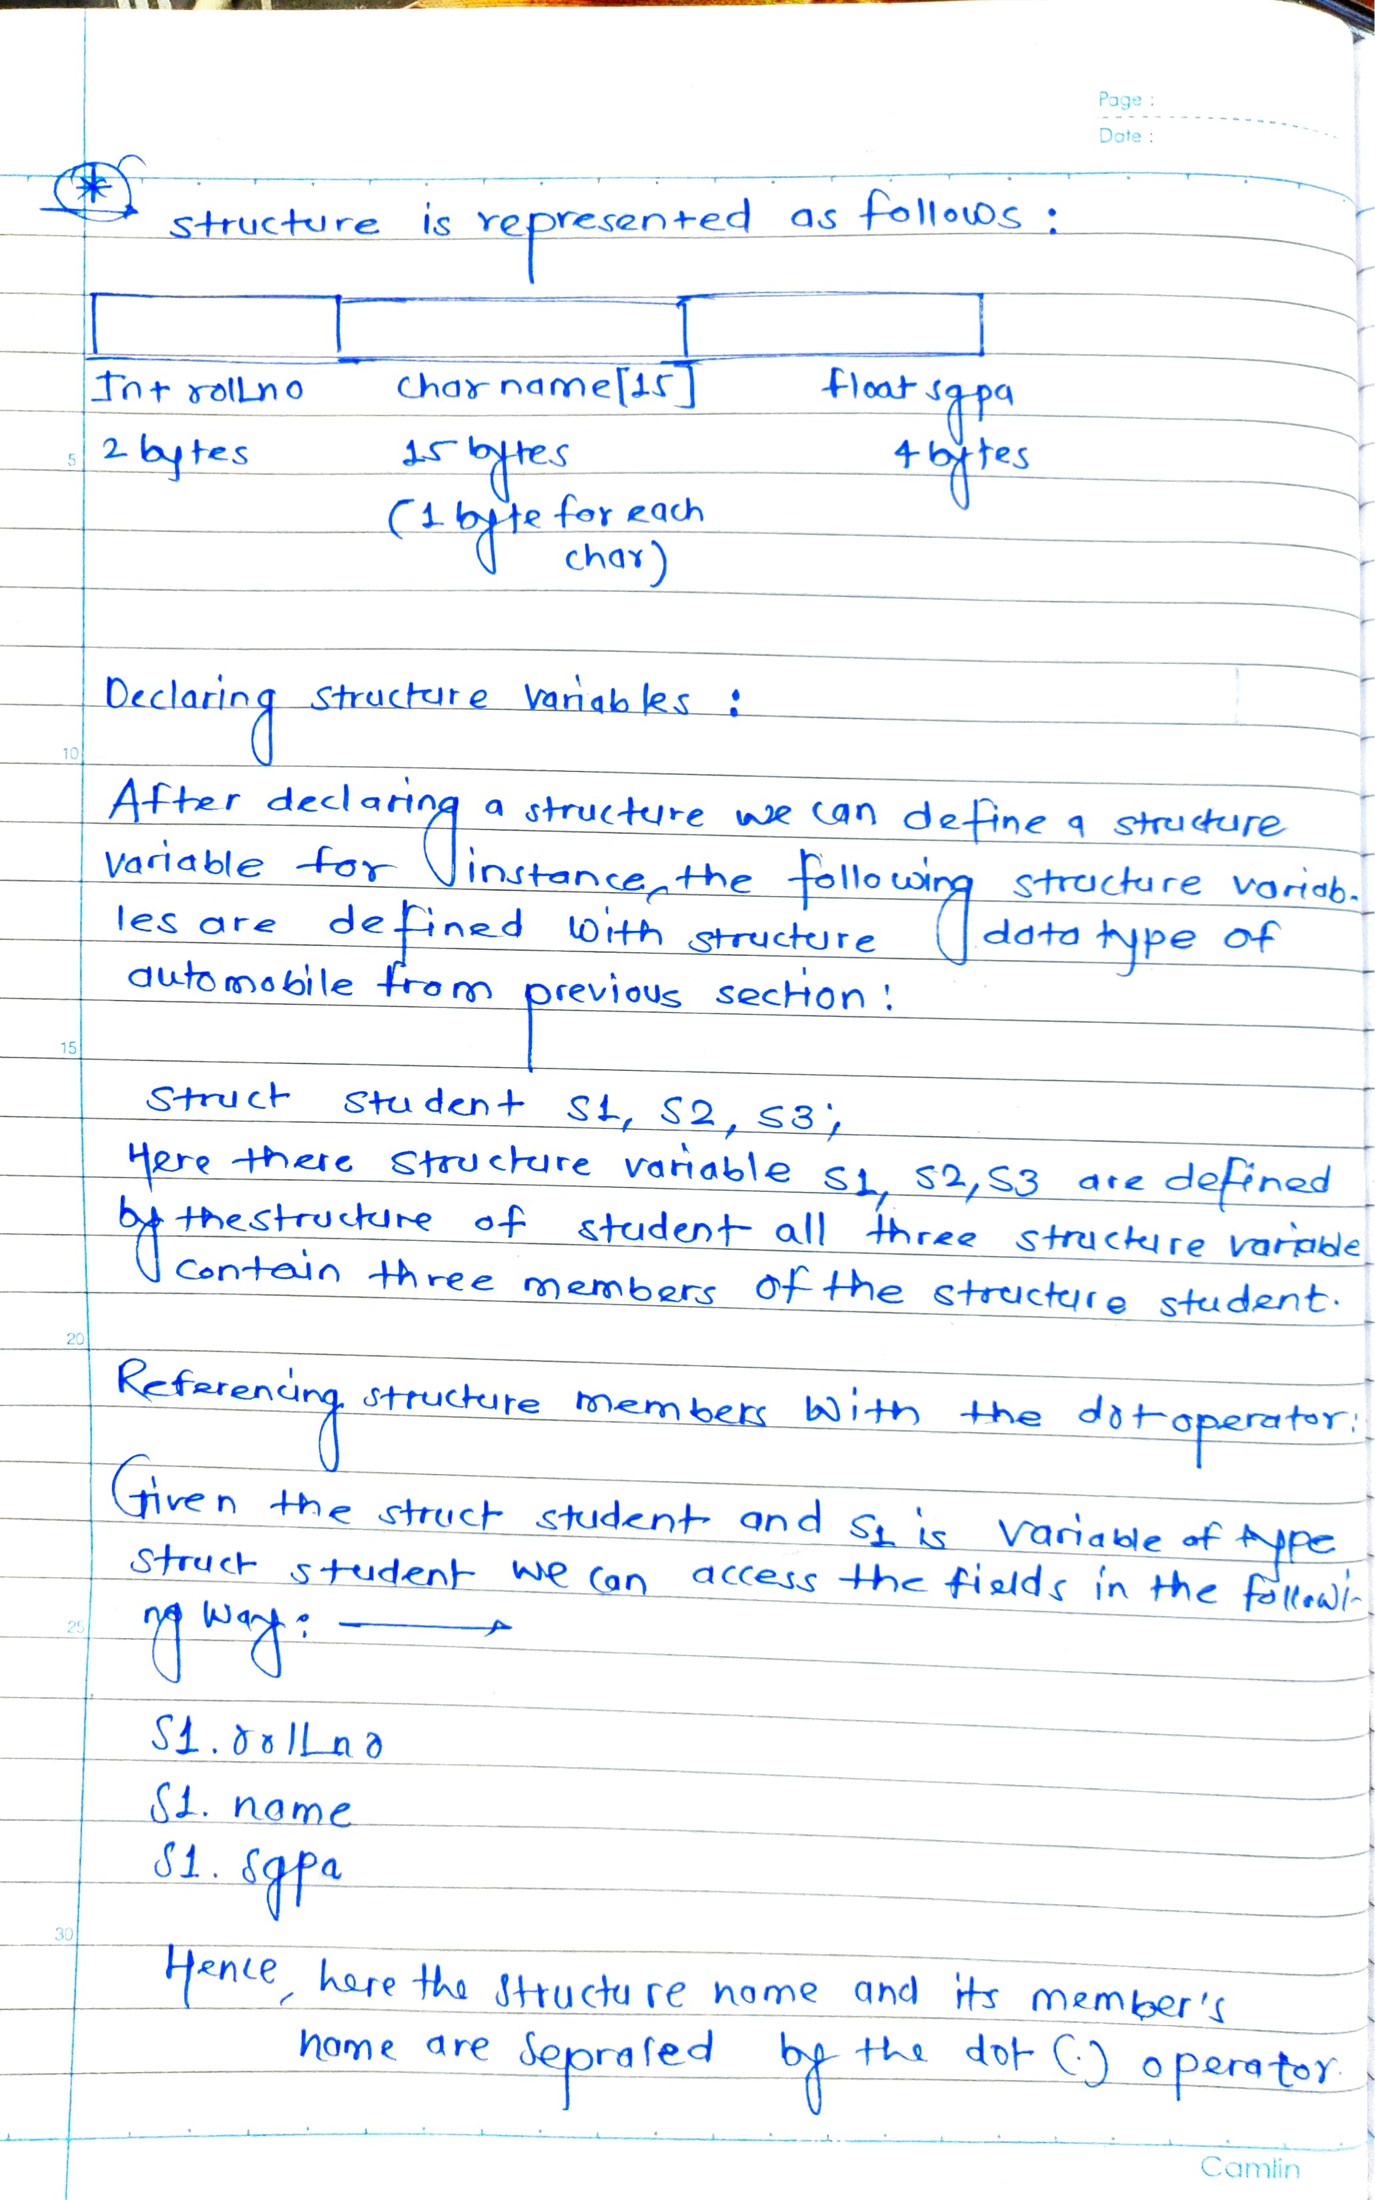 Page :
Date :
*
structure is represented as follows :
Int rollno char name[15] float sgpa
5 2 bytes 15 bytes 4 bytes
(1 byte for each
char)
Declaring structure variables :
10
After declaring a structure we can define a structure
variable for instance, the following structure variab-
les are defined with structure data type of
automobile from previous section :
15
Struct student S1, S2, S3;
Here there structure variable S1, S2, S3 are defined
by the structure of student all three structure variable
contain three members of the structure student.
20
Referencing structure members with the dot operator:
Given the struct student and S1 is variable of type
struct student we can access the fields in the followi-
25 ng way : →
S1. rollno
S1. name
S1. sgpa
30
Hence, here the structure name and its member's
name are seprated by the dot (.) operator.
Camlin